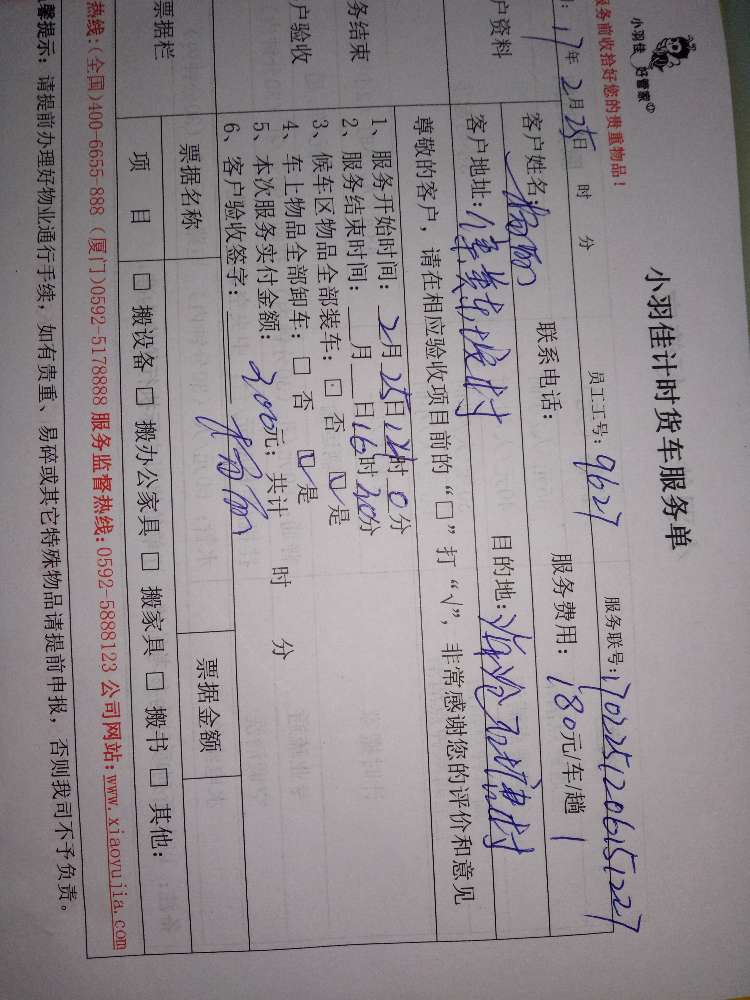 小羽佳 好管家
小羽佳计时货车服务单
服务前收拾好您的贵重物品！
员工工号：9627
服务联号：1702251206151227
17年2月25日 时 分
户资料
客户姓名：杨丽
联系电话：
服务费用：180元/车/趟 1
客户地址：
目的地：
务结束
户验收
尊敬的客户，请在相应验收项目前的“□”打“√”，非常感谢您的评价和意见
1、服务开始时间：2月25日14时0分
2、服务结束时间：月 日16时20分
3、候车区物品全部装车：□ 否 ☑ 是
4、车上物品全部卸车：□ 否 ☑ 是
5、本次服务实付金额：200元；共计 时 分
6、客户验收签字：杨丽
票据栏
票据名称
票据金额
项 目
□ 搬设备 □ 搬办公家具 □ 搬家具 □ 搬书 □ 其他：
热线:(全国)400-6655-888 (厦门)0592-5178888 服务监督热线:0592-5888123 公司网站:www.xiaoyujia.com
馨提示：请提前办理好物业通行手续，如有贵重、易碎或其它特殊物品请提前申报，否则我司不予负责。